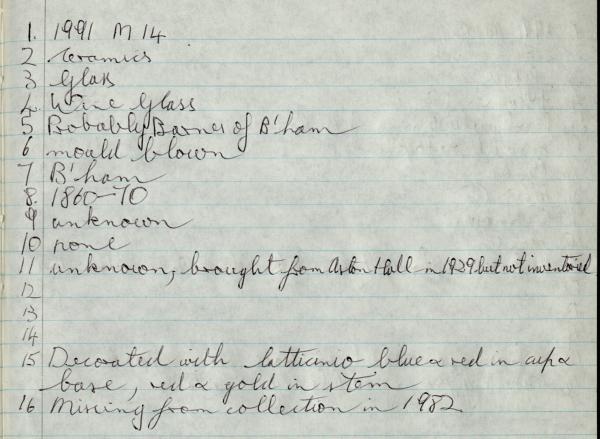 1. 1991 M 14
2 Ceramics
3 Glass
4. Wine Glass
5 Probably Barnes of B'ham
6 mould blown
7 B'ham
8. 1860-70
9 unknown
10 none
11 unknown, brought from Aston Hall in 1929 but not inventoried
12
13
14
15 Decorated with latticinio blue & red in cup &
base, red & gold in stem
16 Missing from collection in 1982